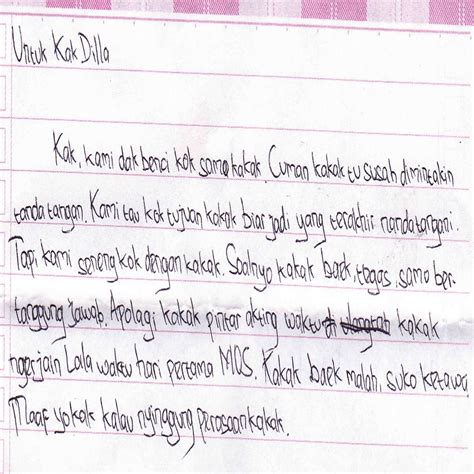 Untuk Kak Dilla
Kak, kami dak benci kok samo kakak. Cuman kakak tu susah dimintakin
tanda tangan. Kami tau kok tujuan kakak biar jadi yang terakhir nandatangani.
Tapi kami seneng kok dengan kakak. Soalnyo kakak baek, tegas, samo ber-
tanggung jawab. Apolagi kakak pintar akting waktu kakak
ngerjain Lala waktu hari pertama MOS. Kakak baek malah, suko ketawa.
Maaf yo kak kalau nyinggung perasaan kakak.